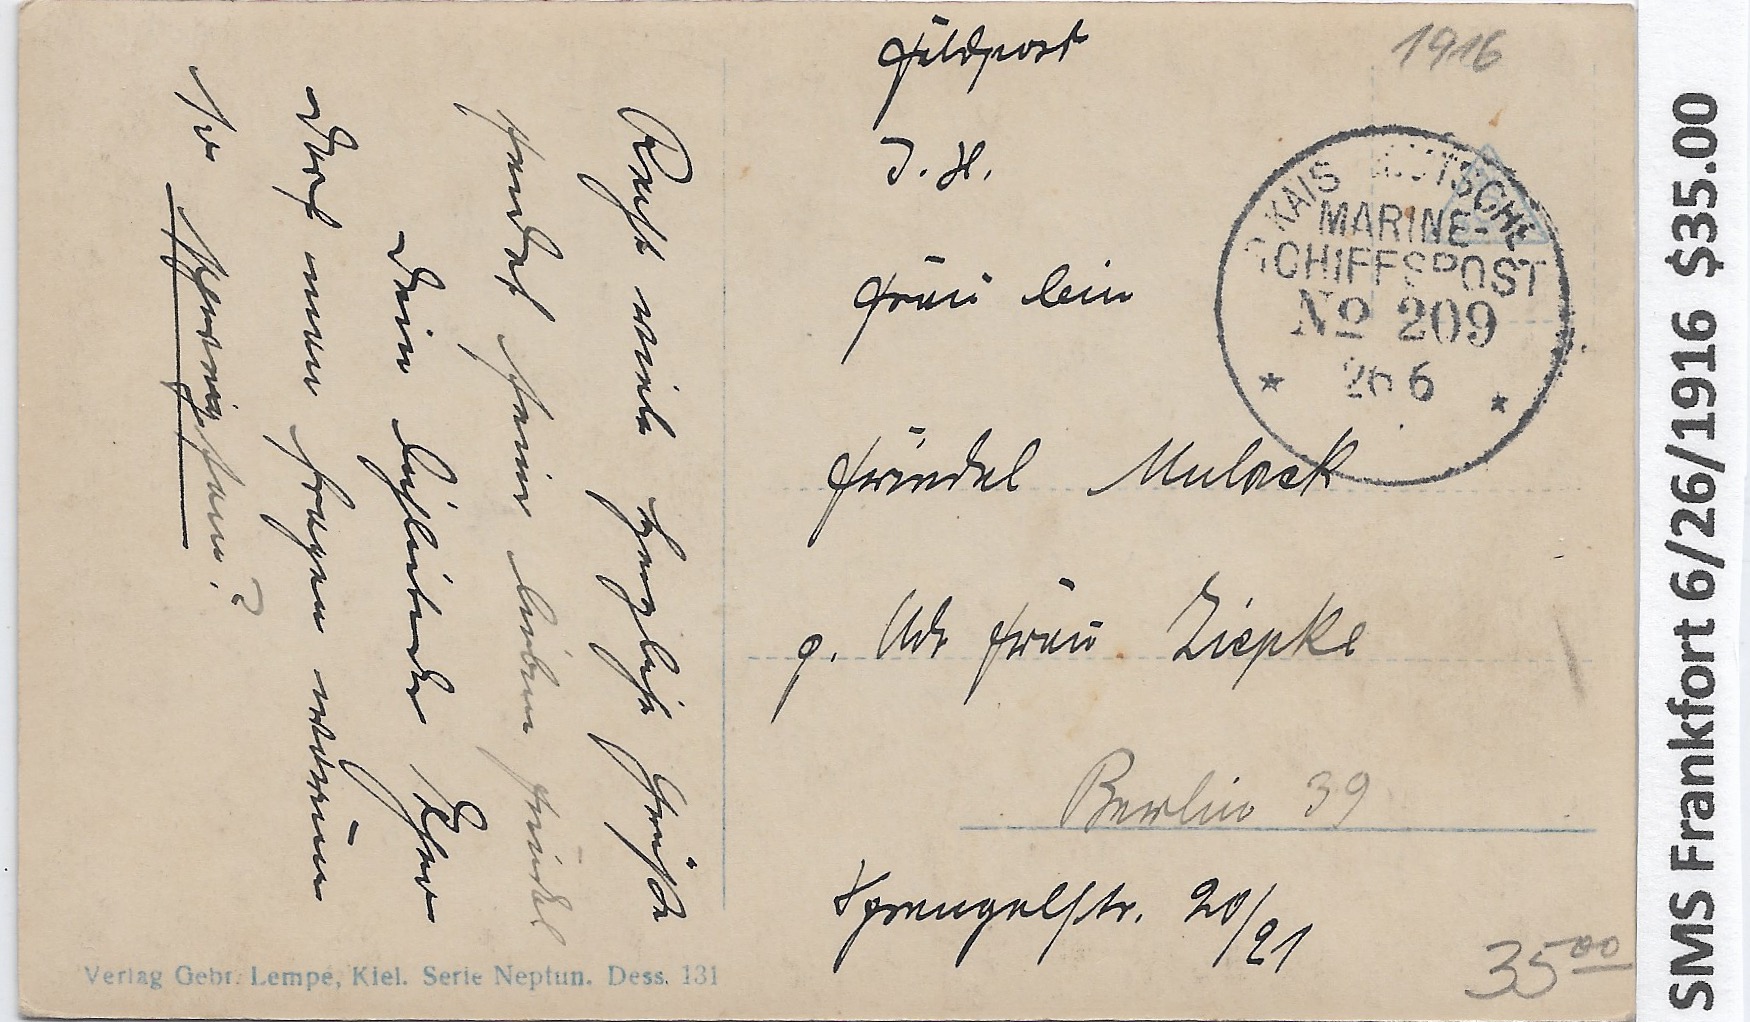 Recht viele herzliche Grüße
sendet seiner lieben Friedel
Dein
Darf man fragen warum
so schweigsam?
Verlag Gebr. Lempe, Kiel. Serie Neptun. Dess. 131
Feldpost
1916
J. H.
Fräulein
Friedel Mulack
Adr Frau Ziepke
Berlin 39
Sprengelstr. 20/21
KAIS DEUTSCHE
MARINE-
SCHIFFSPOST
No 209
26 6
35 00
SMS Frankfort 6/26/1916 $35.00